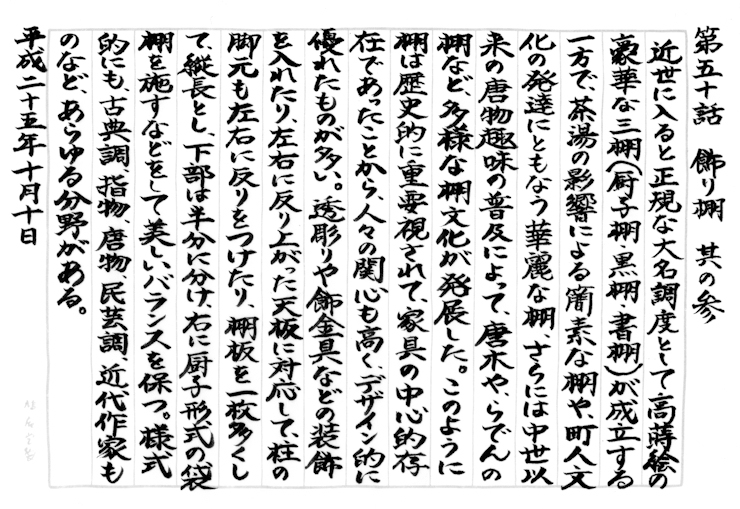 第五十話　飾り棚　其の参
近世に入ると正規な大名調度として高蒔絵の
豪華な三棚(厨子棚・黒棚・書棚)が成立する
一方で、茶湯の影響による簡素な棚や、町人文
化の発達にともなう華麗な棚、さらには中世以
来の唐物趣味の普及によって、唐木や、らでんの
棚など、多様な棚文化が発展した。このように
棚は歴史的に重要視されて、家具の中心的存
在であったことから、人々の関心も高く、デザイン的に
優れたものが多い。透彫りや飾金具などの装飾
を入れたり、左右に反り上がった天板に対応して、柱の
脚元も左右に反りをつけたり、棚板を一枚多くし
て、縦長とし、下部は半分に分け、右に厨子形式の袋
棚を施すなどをして美しいバランスを保つ。様式
的にも、古典調、指物、唐物、民芸調、近代作家も
のなど、あらゆる分野がある。
平成二十五年十月十日